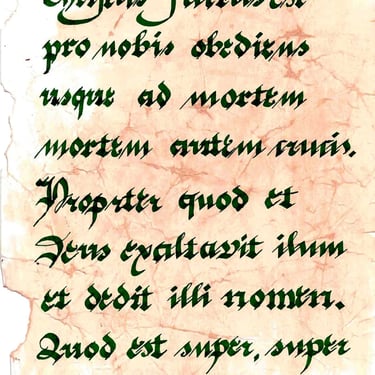 Factus est
pro nobis obediens
usque ad mortem
mortem autem crucis.
Propter quod et
Deus exaltavit ilum
et dedit illi nomen.
Quod est super, super